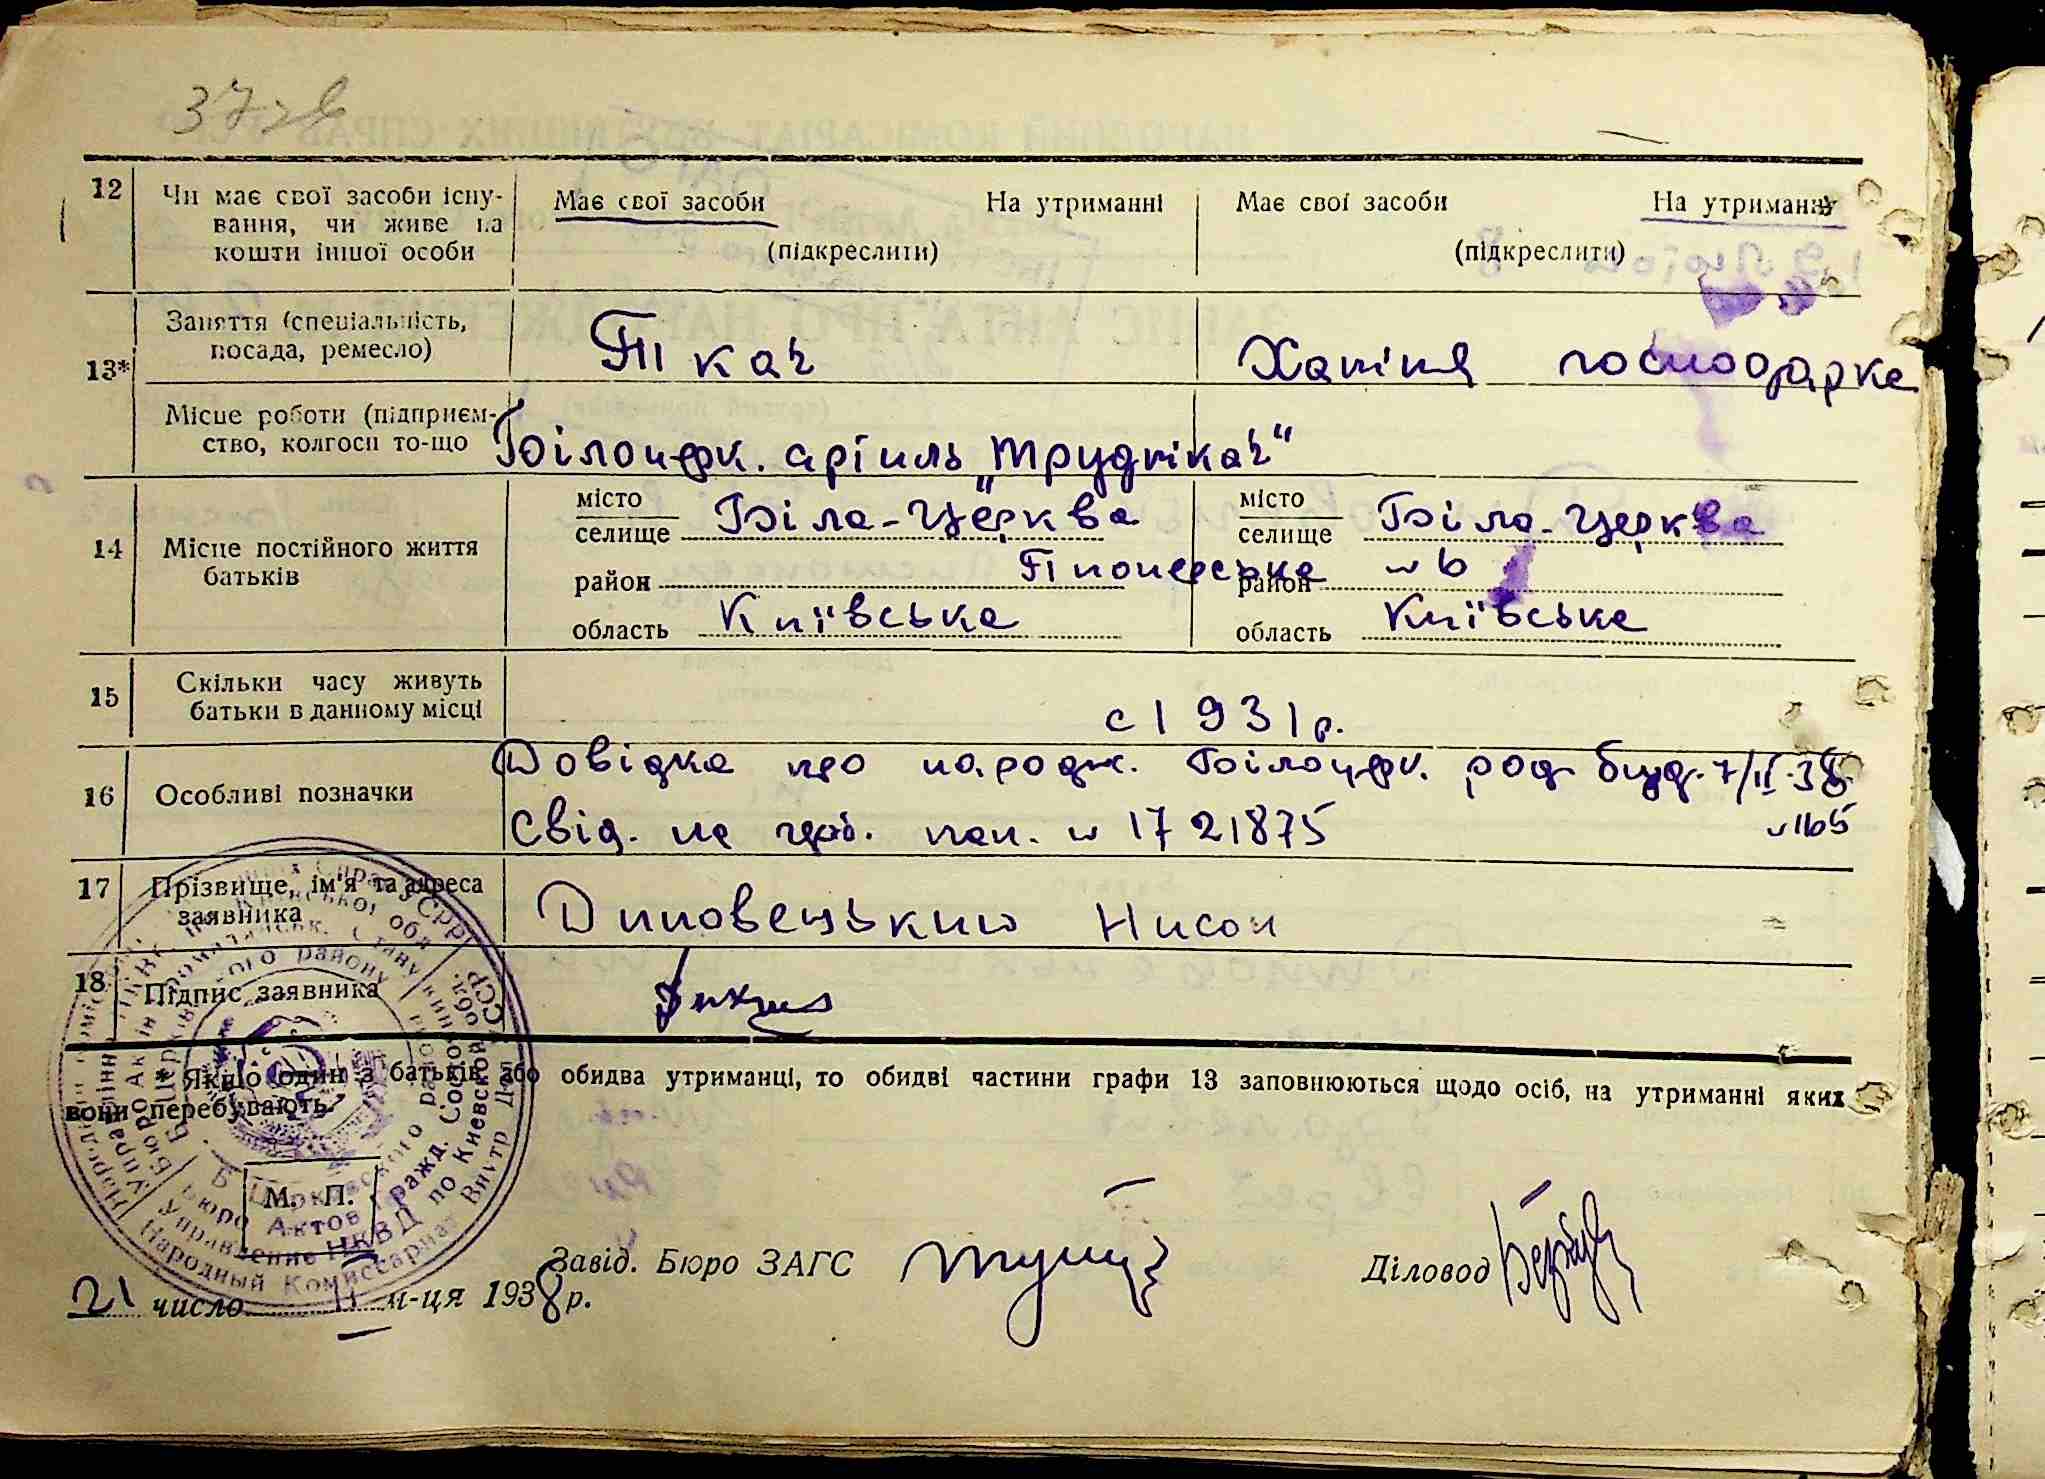 12 Чи має свої засоби існу- Має свої засоби На утриманні Має свої засоби На утриманні
вання, чи живе на
кошти іншої особи (підкреслити) (підкреслити)
13* Заняття (спеціальність, Ткач Хатня господарка
посада, ремесло)
Місце роботи (підприєм- Білоцерк. артіль „Трудткач“
ство, колгосп то-що
14 Місце постійного життя місто Біла-Церква місто Біла-Церква
батьків селище селище
район Піонерська № 6 район
область Київська область Київська
15 Скільки часу живуть
батьки в данному місці с 1931 р.
16 Особливі позначки Довідка про народж. Білоцерк. род буд. 7/II-38
Свід. на шлюб. № 1721875 № 165
17 Прізвище, ім'я та адреса Липовецький Нисон
заявника
18 Підпис заявника
* Якщо один з батьків або обидва утриманці, то обидві частини графи 13 заповнюються щодо осіб, на утриманні яких
вони перебувають.
М. П.
Завід. Бюро ЗАГС Діловод
21 число II м-ця 1938 р.